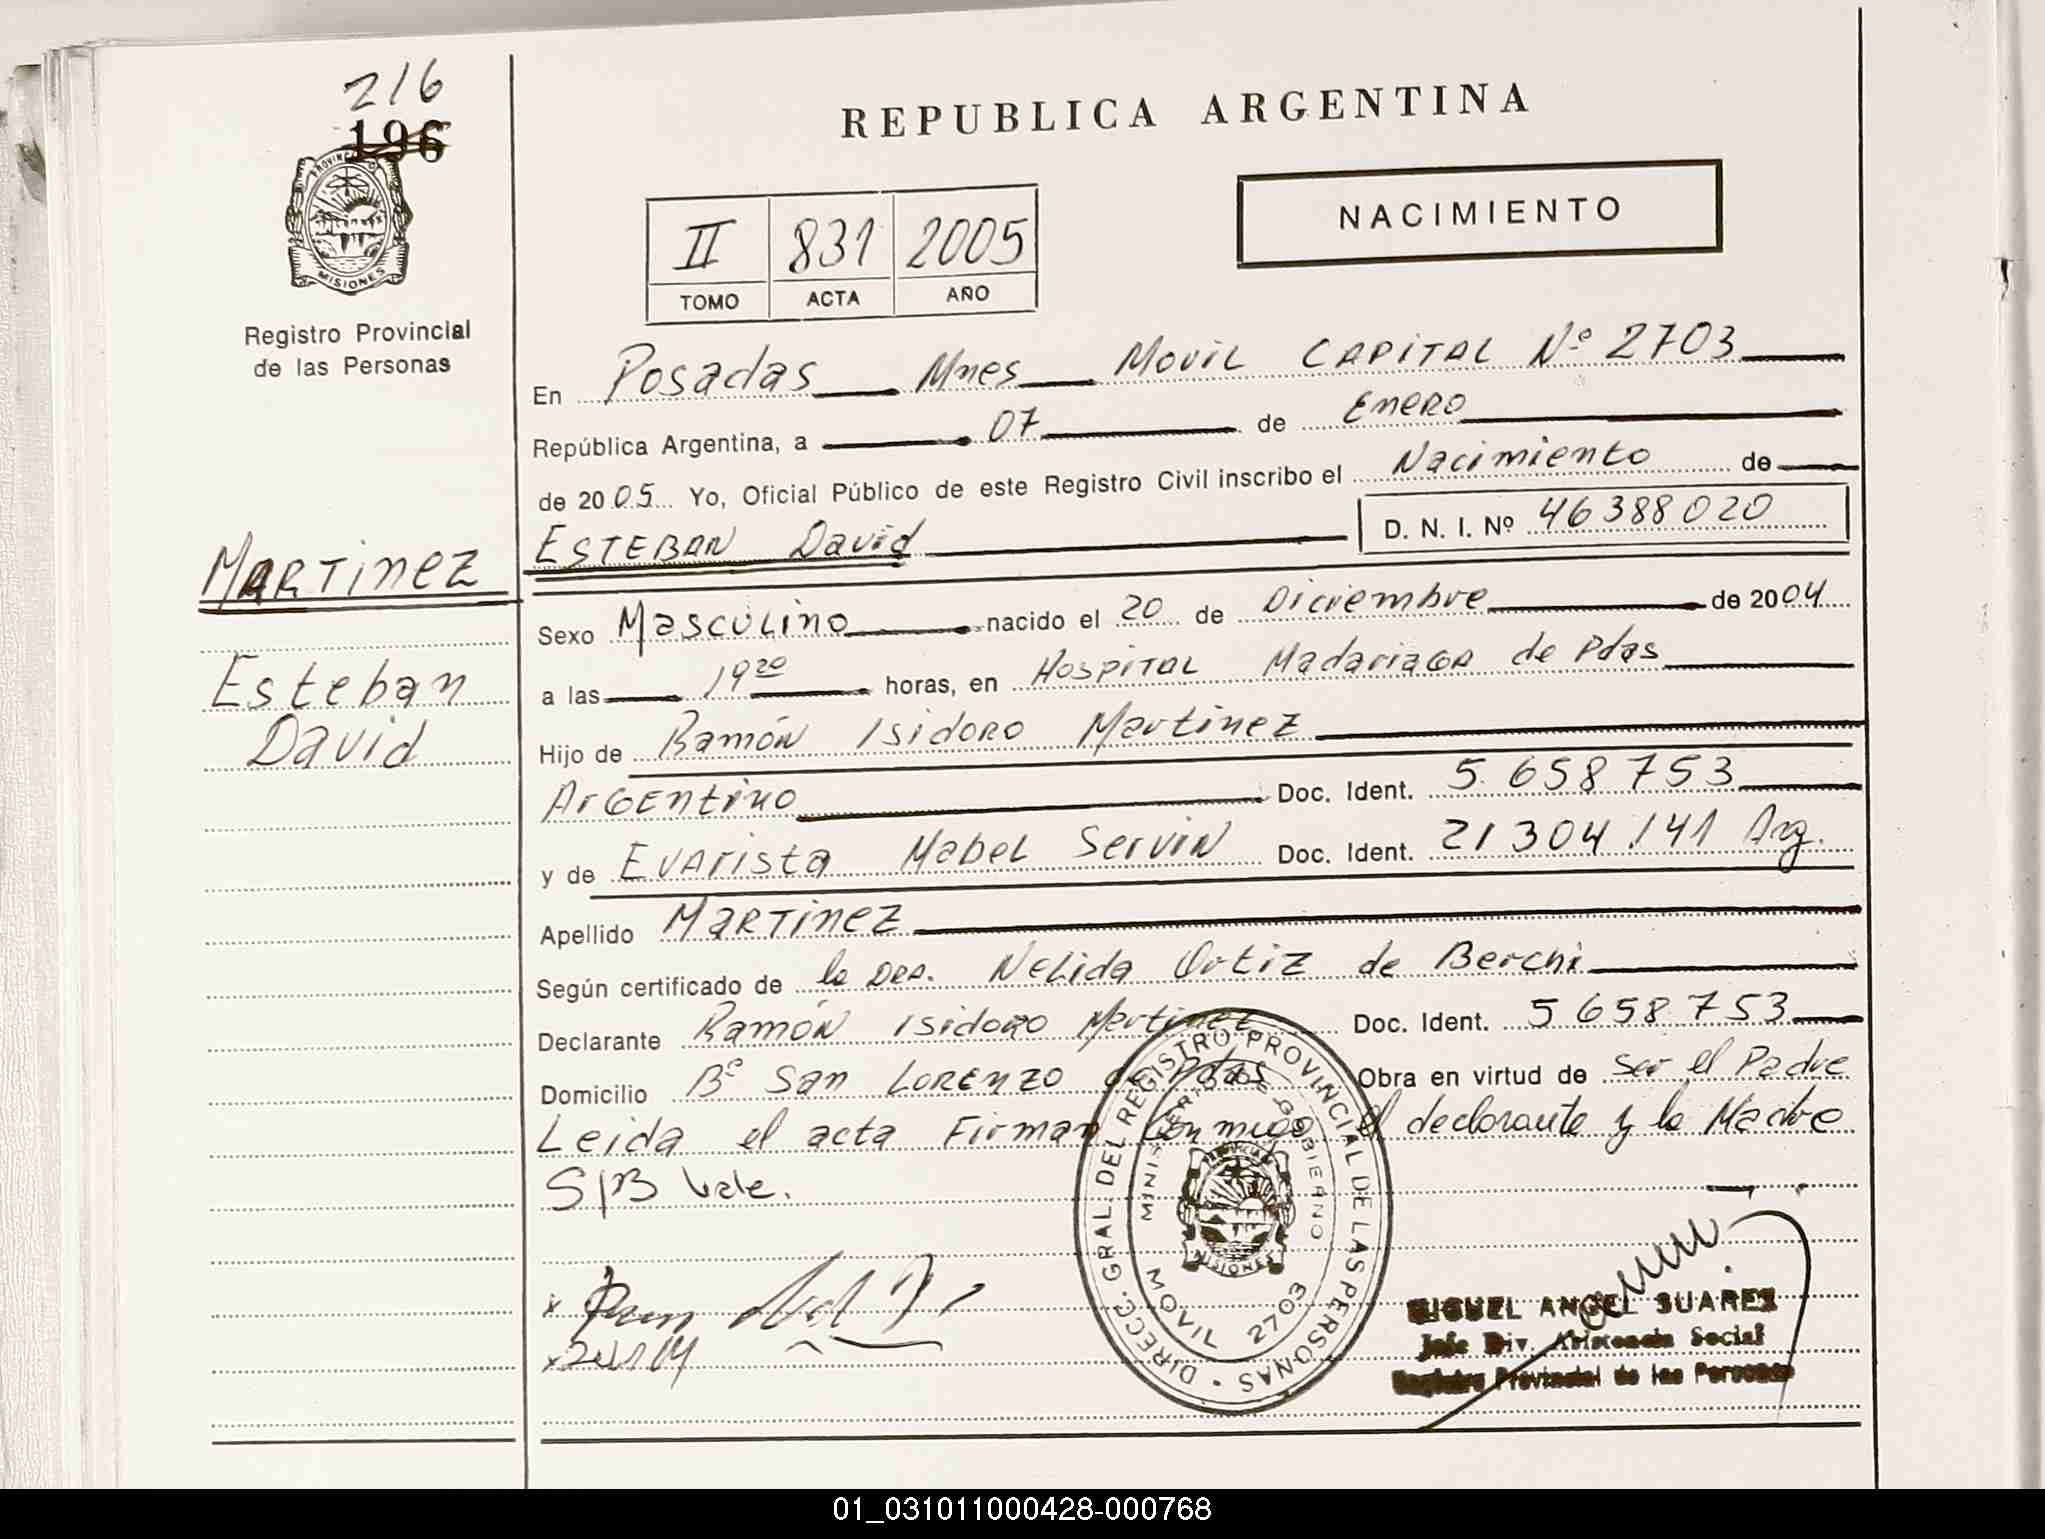 216
196
PROVINCIA DE
MISIONES
Registro Provincial
de las Personas
REPUBLICA ARGENTINA
II 831 2005
TOMO ACTA AÑO
NACIMIENTO
En Posadas Mnes Movil CAPITAL Nº 2703
República Argentina, a 07 de Enero
de 2005 Yo, Oficial Público de este Registro Civil inscribo el Nacimiento de
MARTINEZ ESTEBAN David D. N. I. Nº 46388020
Esteban
David
Sexo Masculino nacido el 20 de Diciembre de 2004
a las 19 20 horas, en Hospital Madariaga de Pdas
Hijo de Ramón Isidoro Martinez
Argentino Doc. Ident. 5.658753
y de Evarista Mabel Servin Doc. Ident. 21304141 Arg.
Apellido MARTINEZ
Según certificado de la Dra. Nelida Ortiz de Berchi
Declarante Ramón Isidoro Martinez Doc. Ident. 5658753
Domicilio Bº San Lorenzo de Pdas Obra en virtud de ser el Padre
Leida el acta Firman Conmigo el declarante y la Madre
S/B Vale.
DIRECC. GRAL. DEL REGISTRO PROVINCIAL DE LAS PERSONAS
MINISTERIO DE GOBIERNO
MISIONES
MOVIL 2703
MIGUEL ANGEL SUAREZ
Jefe Div. Asistencia Social
Registro Provincial de las Personas
01_031011000428-000768